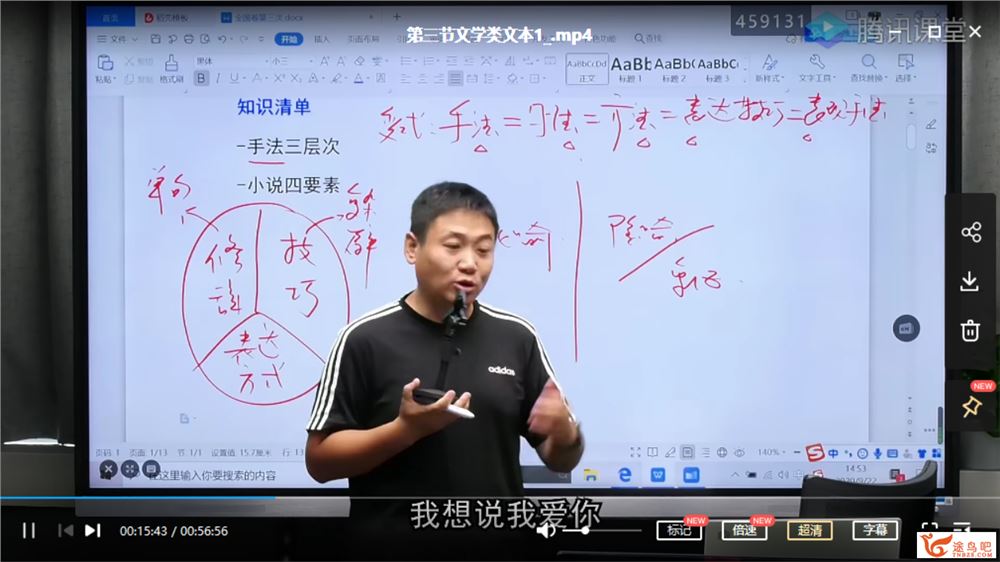 首页
稻壳模板
全国卷第三次.docx
459131
腾讯课堂
第三节文学类文本1_.mp4
文件
开始
插入
页面布局
查找
粘贴
剪切
复制
格式刷
黑体
小三
AaBbCcDd
AaBb
AaBbC
AaBbC
正文
标题 1
标题 2
标题 3
新样式
文字工具
查找替换
选择
知识清单
-手法三层次
-小说四要素
手法
表达技巧
单句
修
技
巧
表达
方式
隐喻
象征
adidas
页码: 1
页面: 1/13
节: 1/1
设置值: 15.7厘米
140%
在这里输入你要搜索的内容
14:53
2020/9/22
我想说我爱你
00:15:43 / 00:56:56
NEW
标记
NEW
倍速
超清
字幕
NEW
途鸟吧
TNBZS.COM